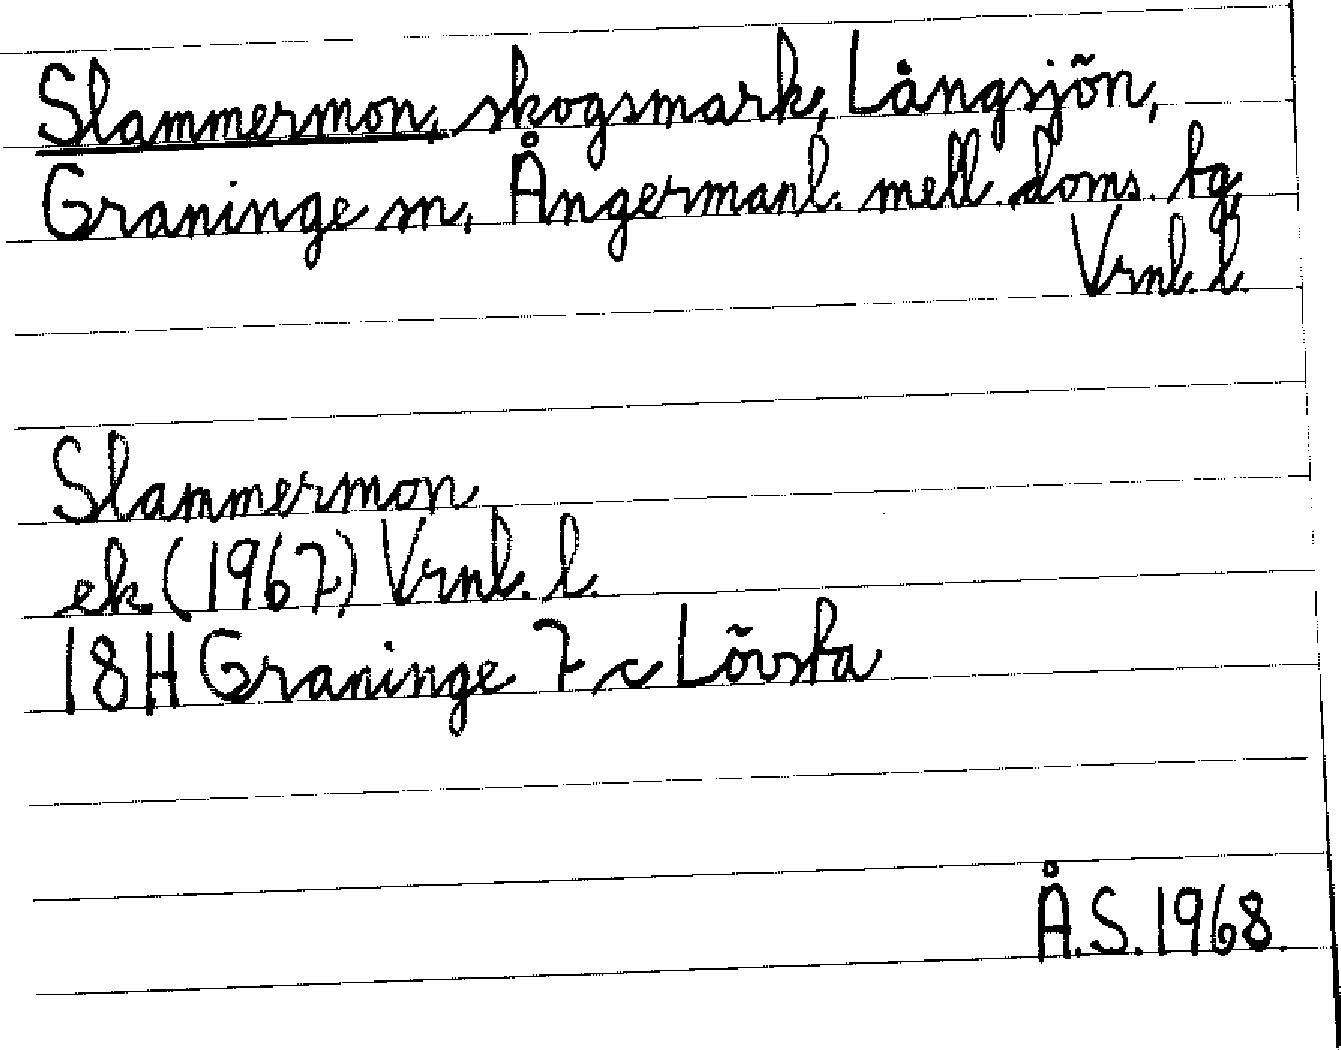 Slammermon, skogsmark, Långsjön,
Graninge sn, Ångermanl. mell. doms. tg,
Vrnl. l.
Slammermon
ek. (1967) Vrnl. l.
18H Graninge 7 c Lövsta
Å.S. 1968.